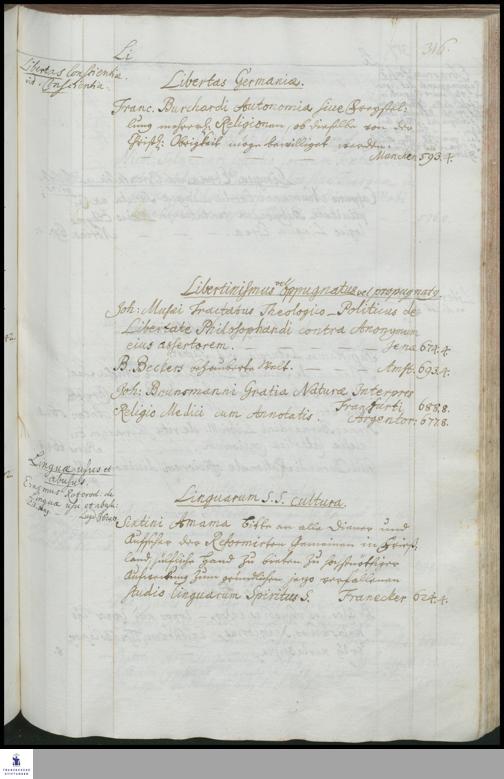 Li
316.
Libertas Conscientiæ.
vid. Conscientia.
Libertas Germaniæ.
Franc. Burchardi Autonomia sive Freystel-
lung mehrerl. Religionen, ob dieselbe von der
Christl. Obrigkeit möge bewilliget werden.
München 593. 4.
Libertinismus vel oppugnatus vel propugnatg.
Joh: Musæi Tractatus Theologico-Politicus de
Libertate Philosophandi contra Anonymum
eius assertorem. - - Jenæ 674. 4.
B. Beckers bezauberte Welt. - - - Amst: 693. 4.
Joh: Brunsmanni Gratia Naturæ Interpres
Francfurti 688. 8.
Religio Medici cum Annotatis. Argentor: 677. 8.
Linguæ usus et
abusus.
Erasmus Roterod. de
Lingua usu et abusu.
Linguarum S.S. cultura.
Sixtini Amama bitte an alle Diener und
Aufseher der Reformirten Gemeinen in Frieß-
land, hülfliche Hand zu bieten zu
zum gründlichen jetzo verfallenen
studio linguarum Spiritus S. Franecker 624. 4.
FRANCKESCHE
STIFTUNGEN